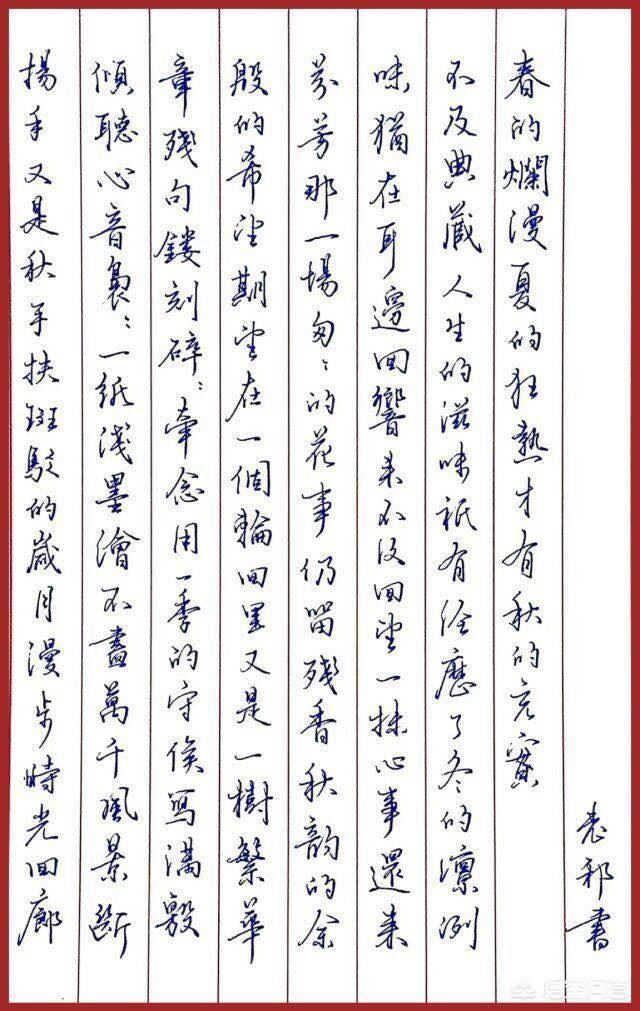 揚手又是秋手扶斑駁的歲月漫步時光回廊
傾聽心音裊〻一紙淺墨繪不盡萬千風景斷
章殘句鏤刻碎〻牽念用一季的守候寫滿殷
殷的希望期望在一個輪回里又是一樹繁華
芬芳那一場匆〻的花事仍留殘香秋韵的余
味猶在耳邊回響来不及回望一抹心事還来
不及典藏人生的滋味祇有經歷了冬的凜冽
春的爛漫夏的狂熱才有秋的充實
書
悟空问答